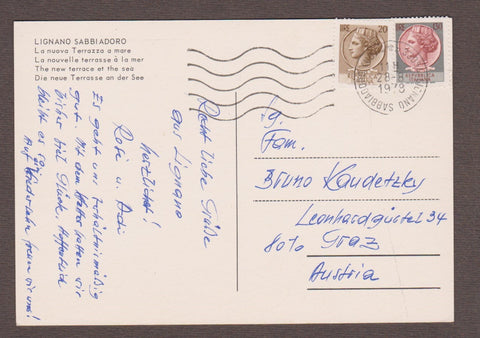 LIGNANO SABBIADORO
La nuova Terrazza a mare
La nouvelle terrasse à la mer
The new terrace et the sea
Die neue Terrasse an der See
Recht liebe Grüße
aus Lignano
herzlichst!
Rosi u.
Es geht uns verhältnismäßig
gut. Mit dem Wetter hatten wir
bisher viel Glück. Hoffentlich
bleibt es so!
Auf Wiedersehn freuen wir uns!
LIRE 20
REPUBBLICA
28-8
1978
LIGNANO SABBIADORO
Lg.
Fam.
Bruno Kaudetzky
Leonhardgürtel 34
8010 Graz
Austria